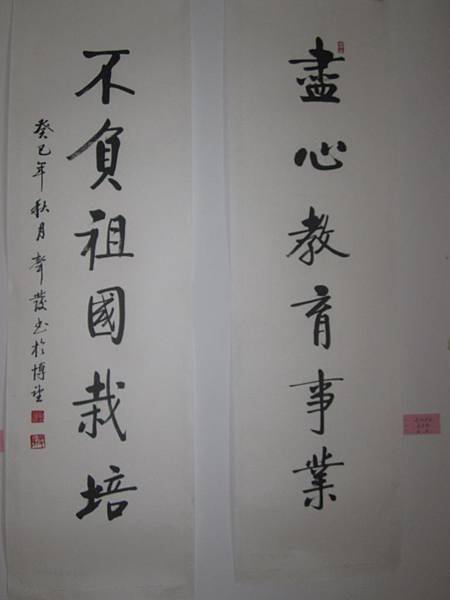 盡心教育事業
不負祖國栽培
癸巳年秋月聲發书於博望